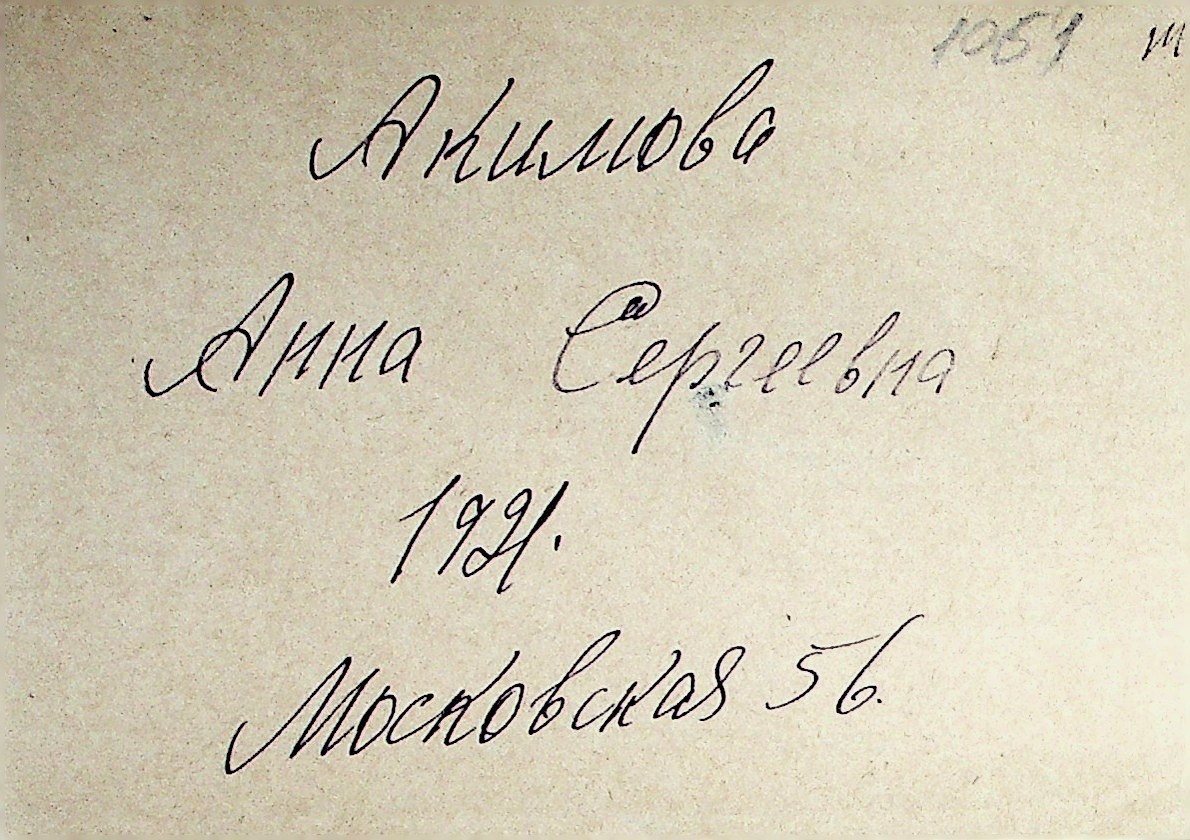 1051 т
Акимова
Анна Сергеевна
1921.
Московская 56.